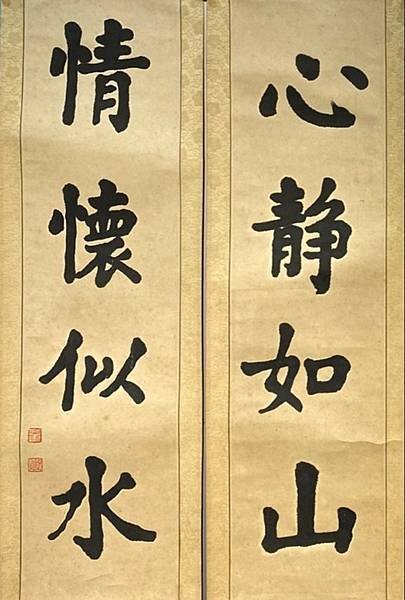 心静如山
情懷似水